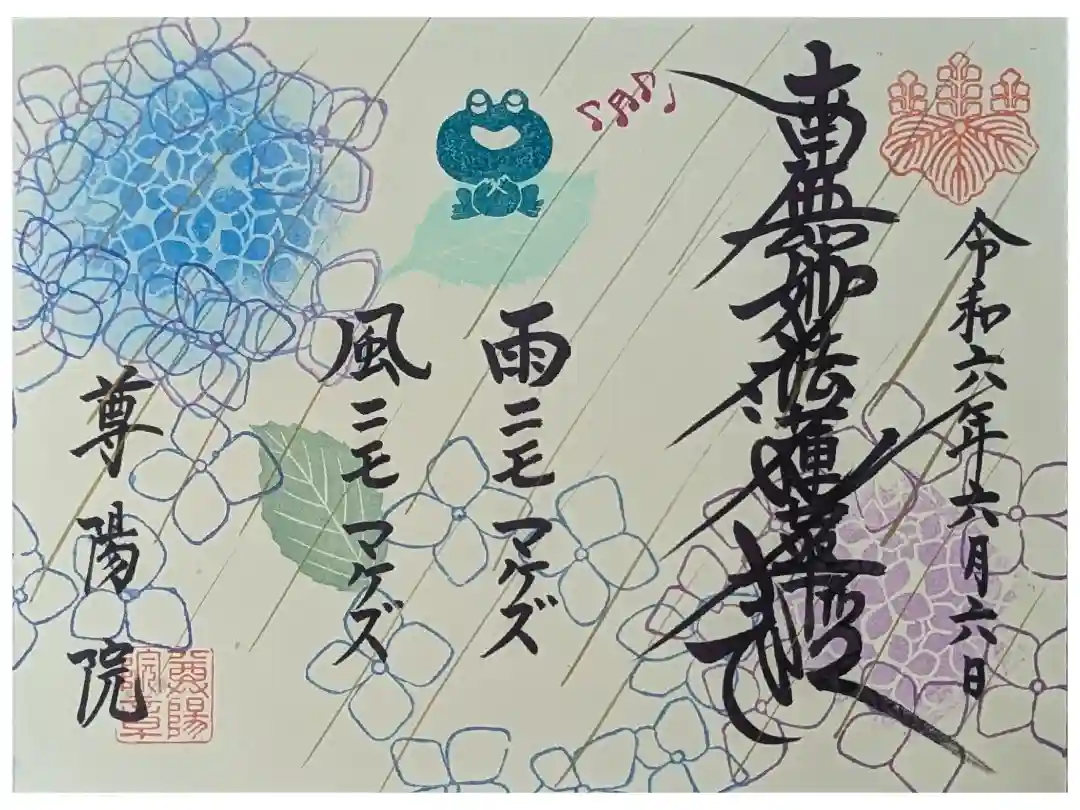 令和六年六月六日
南無妙法蓮華経
雨ニモマケズ
風ニモマケズ
尊陽院